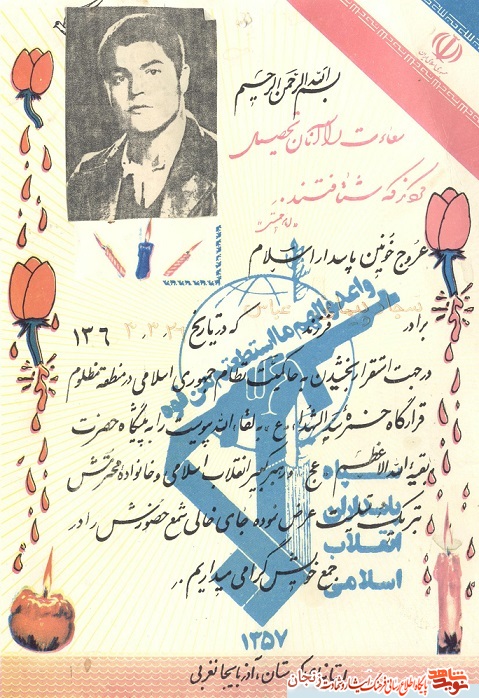 بسم الله الرحمن الرحیم
سعادت را آنان تحصیل
کردند که شتافتند..
عروج خونین پاسدار اسلام
برادر فرزند عباس که در تاریخ ۱۳۶
در جهت استقرار بخشیدن به حاکمیت نظام جمهوری اسلامی در منطقه مظلوم
قرارگاه حمزه سیدالشهداء «ع» به لقاءالله پیوست را به پیشگاه حضرت
بقیة الله الاعظم «عج» و رهبر کبیر انقلاب اسلامی و خانواده محترمش
تبریک و تسلیت عرض نموده جای خالی شمع حضورش را در
جمع خویش گرامی میداریم..
واعدوا لهم ما استطعتم من قوة
سپاه
پاسداران
انقلاب
اسلامی
۱۳۵۷
کردستان، آذربایجانغربی
نوید شاهد